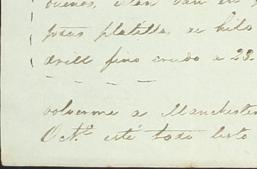 buenos, Dan van en
platilla, de hilo
drill fino crudo a 23.
volverme a Manchester
Oct.e esté todo listo